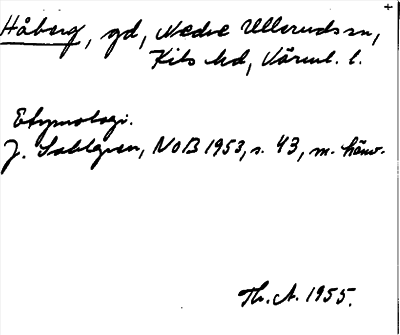 Håberg, gd, Nedre Ulleruds sn,
Kils hd, Värml. l.
Etymologi.
J. Sahlgren, NoB 1953, s. 43, m. hänv.
Th. A. 1955.